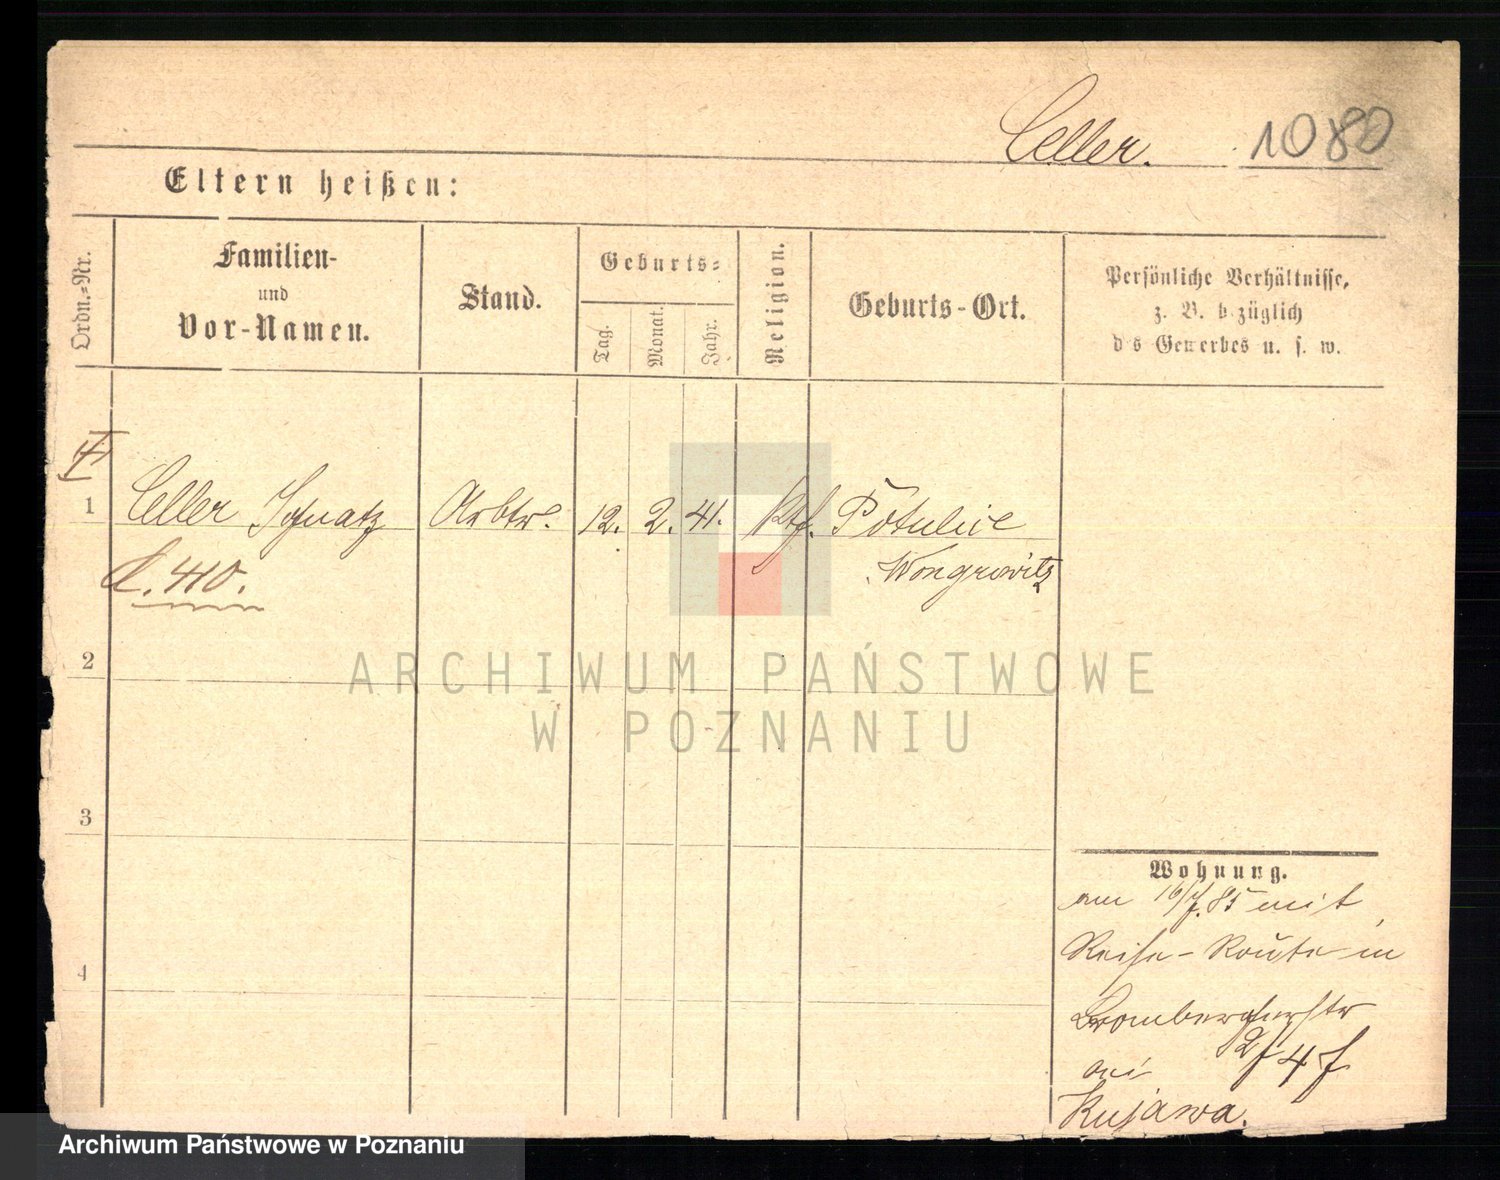 Celler. 1080
Eltern heißen:
Ordn.-Nr.
Familien-
und
Vor-Namen.
Stand.
Geburts-
Tag.
Monat.
Jahr.
Religion.
Geburts-Ort.
Persönliche Verhältnisse,
z. B. bezüglich
des Gewerbes u. s. w.
1 Celler Ignatz Arbtr. 12. 2. 41. Ktf. Potulice
Wongrowitz
d. 410.
2
ARCHIWUM PAŃSTWOWE
W POZNANIU
3
4
Wohnung.
am 16/7. 85 mit
Reise-Route in
Brombergerstr
2/4
bei
Kujawa.
Archiwum Państwowe w Poznaniu